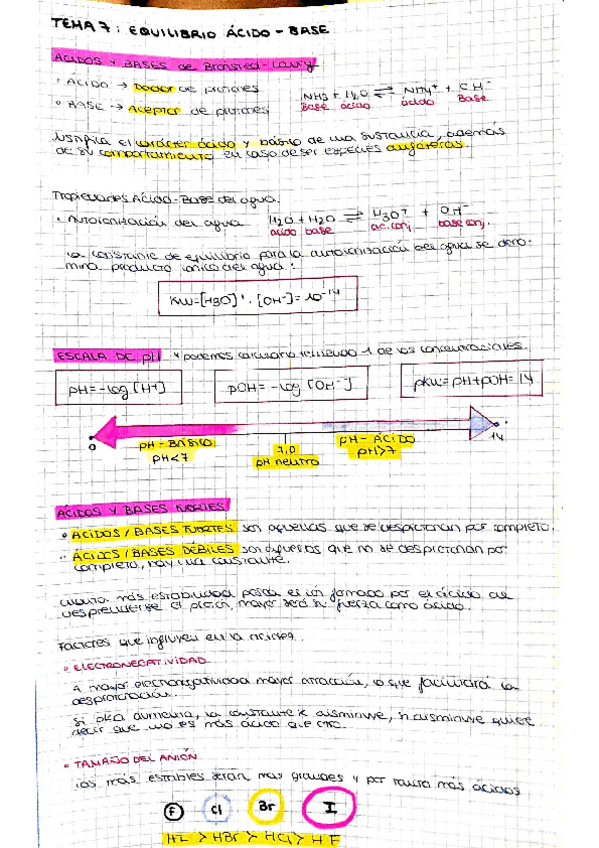 TEMA 7: EQUILIBRIO ÁCIDO - BASE
ÁCIDOS Y BASES de Brönsted-Lowry
• ÁCIDO → Dador de protones
• BASE → Aceptor de protones
NH3 + H2O ⇌ NH4+ + OH-
Base ácido ácido Base
Justifica el carácter ácido y básico de una sustancia, además
de su comportamiento en caso de ser especies anfóteras.
Propiedades Ácido-Base del agua.
• Autoionización del agua H2O + H2O ⇌ H3O+ + OH-
ácido base ac.conj base conj.
la constante de equilibrio para la autoionización del agua se deno-
mina producto iónico del agua:
Kw=[H3O]+ · [OH-]= 10-14
ESCALA DE pH y podemos calcularlo teniendo 1 de las concentraciones.
pH=-log [H+]
pOH= -log [OH-]
pKw= pH+pOH= 14
0 14
pH - BÁSICO
pH<7
7,0
pH neutro
pH - ÁCIDO
pH>7
ÁCIDOS Y BASES FUERTES
• ÁCIDOS / BASES FUERTES son aquellas que se desprotonan por completo.
• ÁCIDOS / BASES DÉBILES son aquellos que no se desprotonan por
completo, hay una constante.
Cuanta más estabilidad posea el ión formado por el ácido al
desprenderse el protón, mayor será su fuerza como ácido.
Factores que influyen en la acidez.
• ELECTRONEGATIVIDAD
A mayor electronegatividad mayor atracción, lo que facilitará la
desprotonación.
Si pka aumenta, la constante k disminuye, si disminuye quiere
decir que uno es más ácido que otro.
• TAMAÑO DEL ANIÓN
los más estables serán más grandes y por tanto más ácidos
F Cl Br I
HI > HBr > HCl > HF